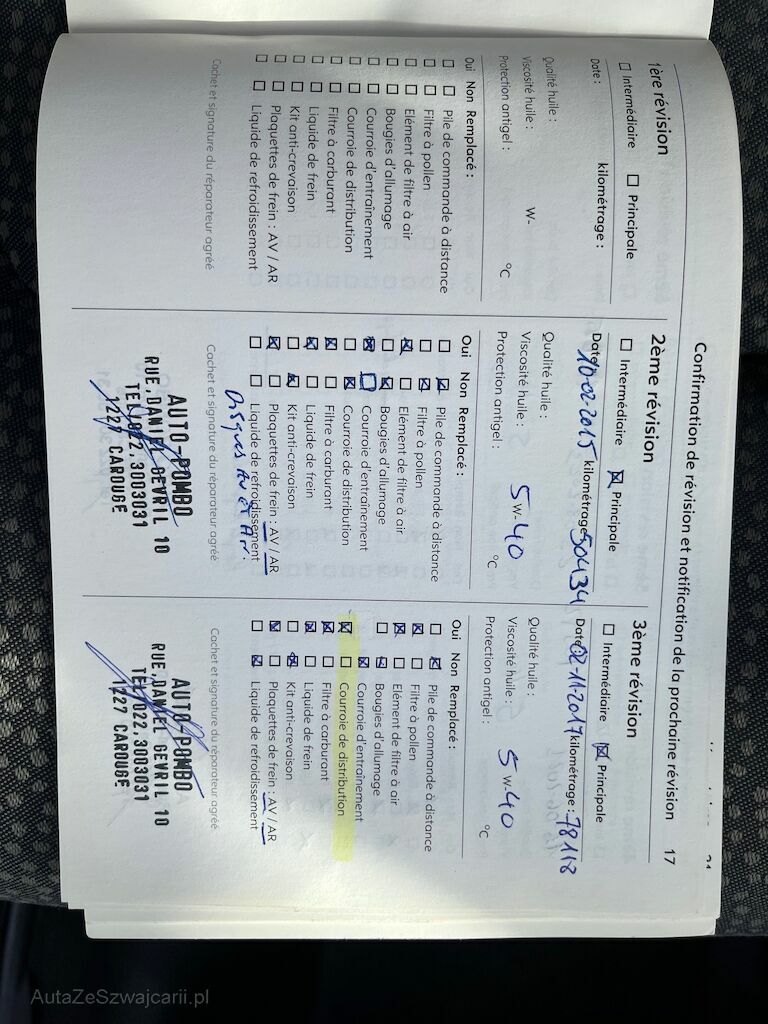 Confirmation de révision et notification de la prochaine révision 17
1ère révision
☐ Intermédiaire ☐ Principale
Date : kilométrage :
Qualité huile :
Viscosité huile : W-
Protection antigel : °C
Oui Non Remplacé :
☐ ☐ Pile de commande à distance
☐ ☐ Filtre à pollen
☐ ☐ Elément de filtre à air
☐ ☐ Bougies d'allumage
☐ ☐ Courroie d'entraînement
☐ ☐ Courroie de distribution
☐ ☐ Filtre à carburant
☐ ☐ Liquide de frein
☐ ☐ Kit anti-crevaison
☐ ☐ Plaquettes de frein : AV / AR
☐ ☐ Liquide de refroidissement
Cachet et signature du réparateur agréé
2ème révision
☐ Intermédiaire ☒ Principale
Date 10-02-2015 kilométrage 50434
Qualité huile :
Viscosité huile : 5 W-40
Protection antigel : °C
Oui Non Remplacé :
☐ ☒ Pile de commande à distance
☐ ☒ Filtre à pollen
☒ ☐ Elément de filtre à air
☐ ☒ Bougies d'allumage
☒ ☐ Courroie d'entraînement
☐ ☒ Courroie de distribution
☒ ☐ Filtre à carburant
☒ ☐ Liquide de frein
☐ ☒ Kit anti-crevaison
☒ ☐ Plaquettes de frein : AV / AR
☐ ☐ Liquide de refroidissement
Disques Av et Ar.
Cachet et signature du réparateur agréé
AUTO-POMBO
RUE DANIEL GEVRIL 10
TEL 022.3003031
1227 CAROUGE
3ème révision
☐ Intermédiaire ☒ Principale
Date 02-11-2017 kilométrage : 78118
Qualité huile :
Viscosité huile : 5 W-40
Protection antigel : °C
Oui Non Remplacé :
☐ ☒ Pile de commande à distance
☒ ☐ Filtre à pollen
☒ ☐ Elément de filtre à air
☐ ☒ Bougies d'allumage
☐ ☒ Courroie d'entraînement
☒ ☐ Courroie de distribution
☒ ☐ Filtre à carburant
☒ ☐ Liquide de frein
☐ ☒ Kit anti-crevaison
☒ ☐ Plaquettes de frein : AV / AR
☐ ☒ Liquide de refroidissement
Cachet et signature du réparateur agréé
AUTO-POMBO
RUE DANIEL GEVRIL 10
TEL 022.3003031
1227 CAROUGE
AutaZeSzwajcarii.pl